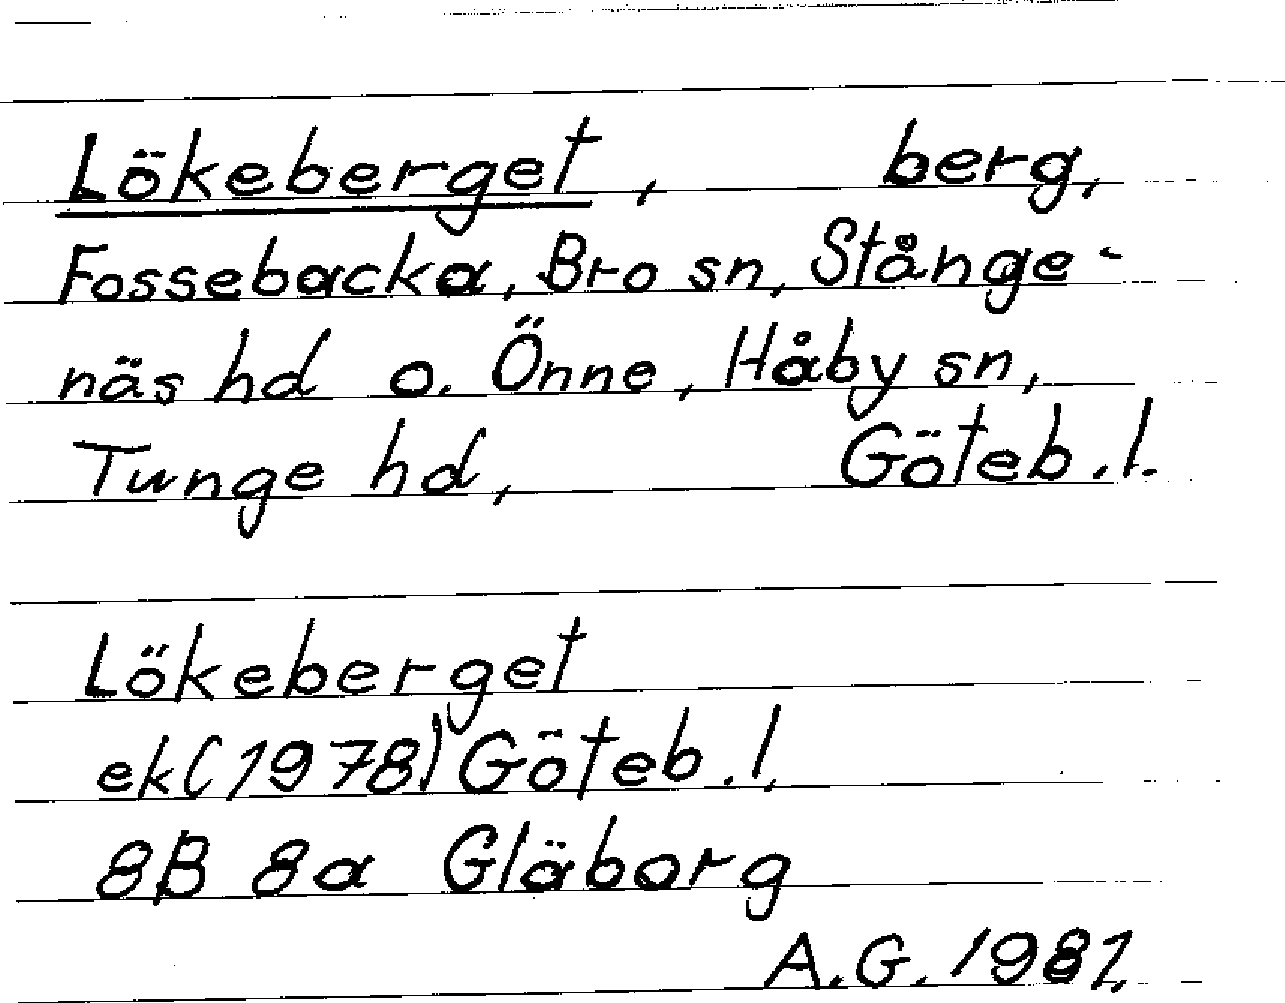 Lökeberget, berg,
Fossebacka, Bro sn, Stånge-
näs hd o. Önne, Håby sn,
Tunge hd, Göteb.l.
Lökeberget
ek(1978) Göteb.l.
8B 8a Gläborg
A.G. 1981.